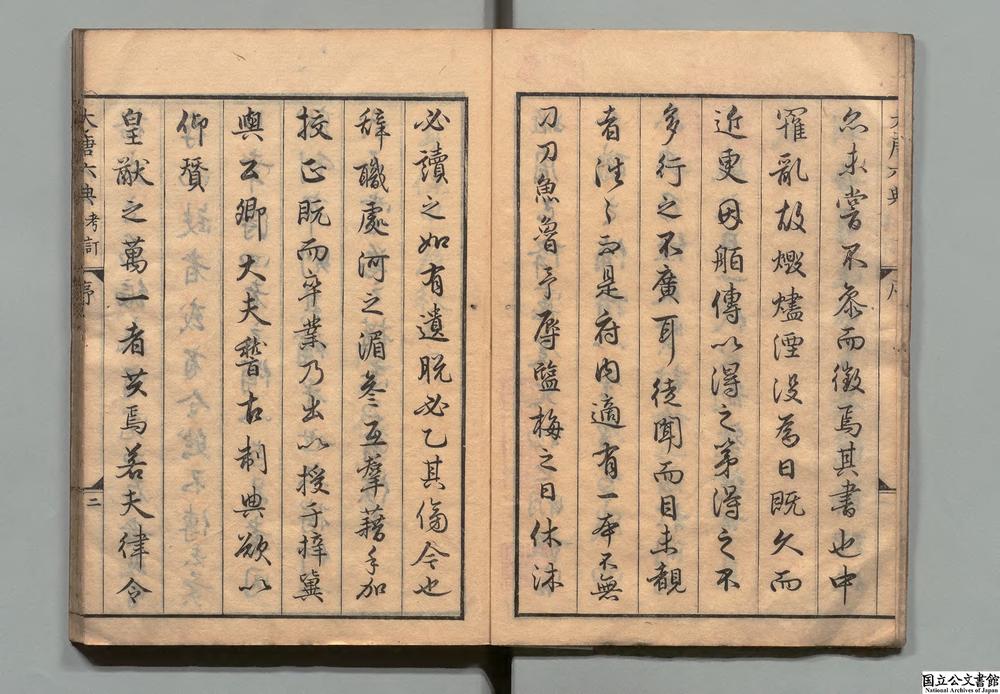 亦未嘗不參而徵焉其書也中
罹亂故燬燼湮没焉日既久而
近更因舶傳以得之第得之不
多行之不廣耳徒聞而目未覩
者往〻而是府内適有一本不無
刀刁魚魯予辱鹽梅之日休沐
必讀之如有遺脱必乙其傷今也
辭職處河之湄參互羣藉手加
挍正既而卒業乃出以授于梓冀
與公卿大夫稽古制典欲以
仰賛
皇猷之萬一者共焉若夫律令
大唐六典考訂 序 二
国立公文書館
National Archives of Japan